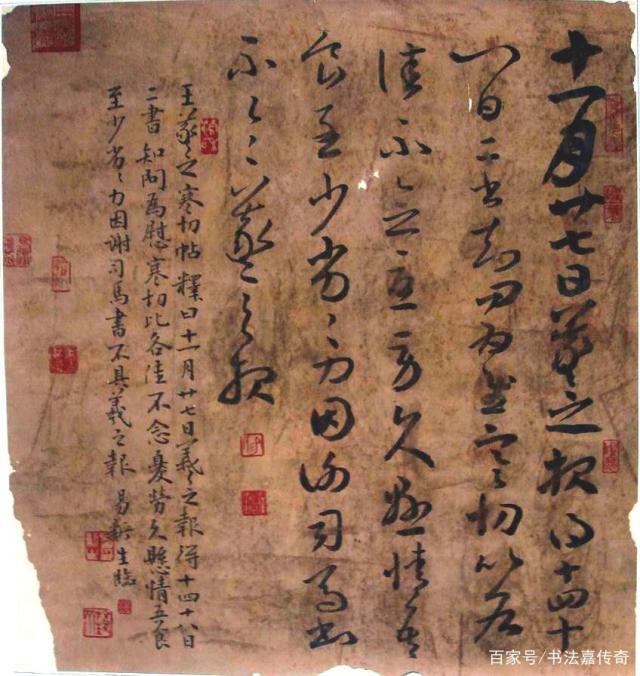 十一月廿七日羲之報得十四十
八日二書知問為慰寒切比各
佳不念憂勞久懸情吾
食至少劣〻力因謝司馬書
不具羲之報
王羲之寒切帖 釋曰十一月廿七日羲之報得十四十八日
二書知問為慰寒切比各佳不念憂勞久懸情吾食
至少劣〻力因謝司馬書不具羲之報 易新生臨
百家号/书法嘉传奇